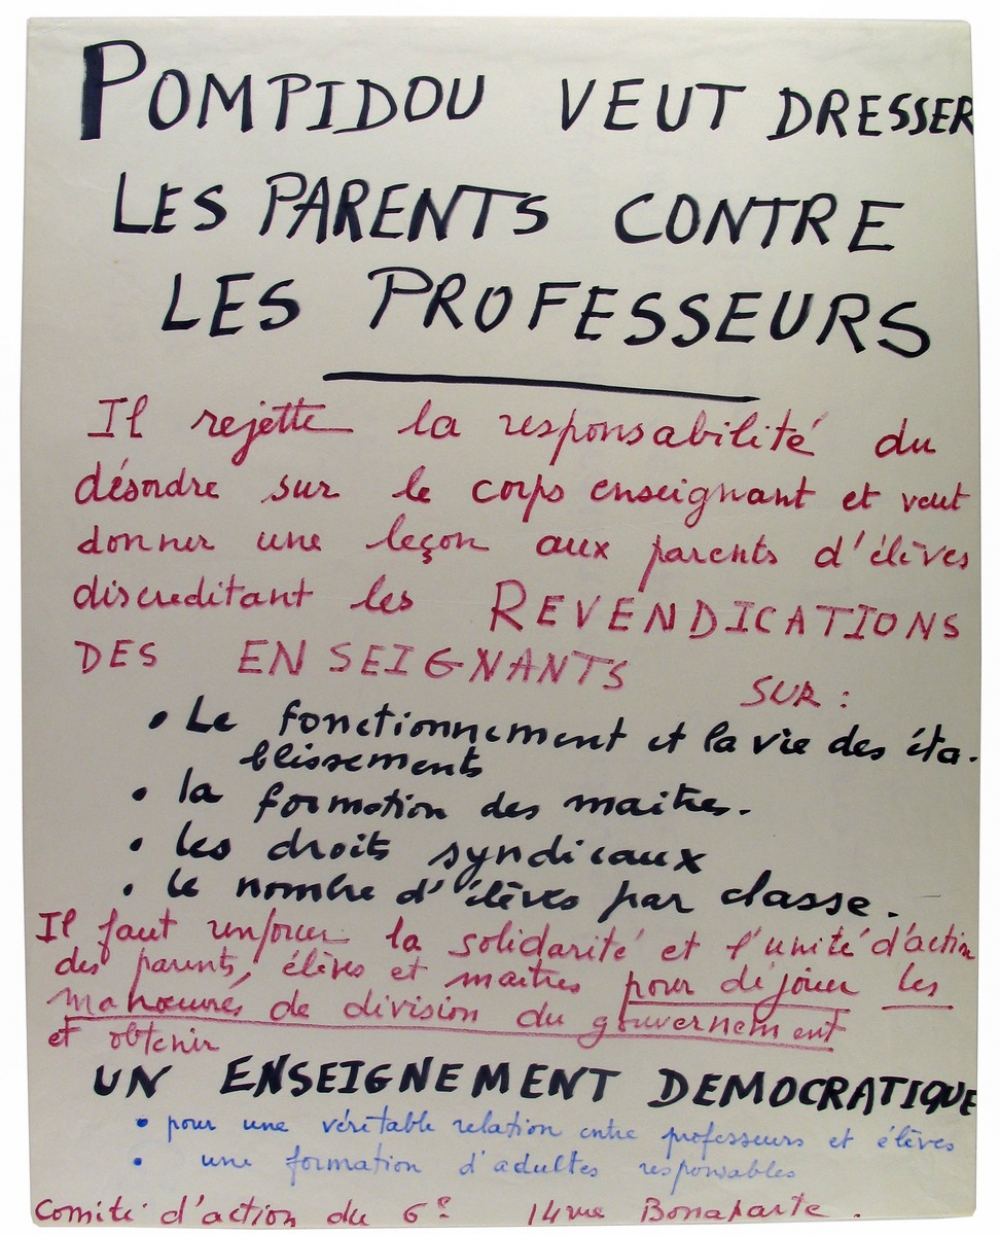 POMPIDOU VEUT DRESSER
LES PARENTS CONTRE
LES PROFESSEURS
Il rejette la responsabilité du
désordre sur le corps enseignant et veut
donner une leçon aux parents d'élèves
discreditant les REVENDICATIONS
DES ENSEIGNANTS SUR :
• Le fonctionnement et la vie des éta-
blissements
• la formation des maitres.
• les droits syndicaux
• le nombre d'élèves par classe.
Il faut renforcer la solidarité et l'unité d'action
des parents, élèves et maitres pour déjouer les
manœuvres de division du gouvernement
et obtenir
UN ENSEIGNEMENT DEMOCRATIQUE
• pour une véritable relation entre professeurs et élèves
• une formation d'adultes responsables
Comité d'action du 6e 14 rue Bonaparte.